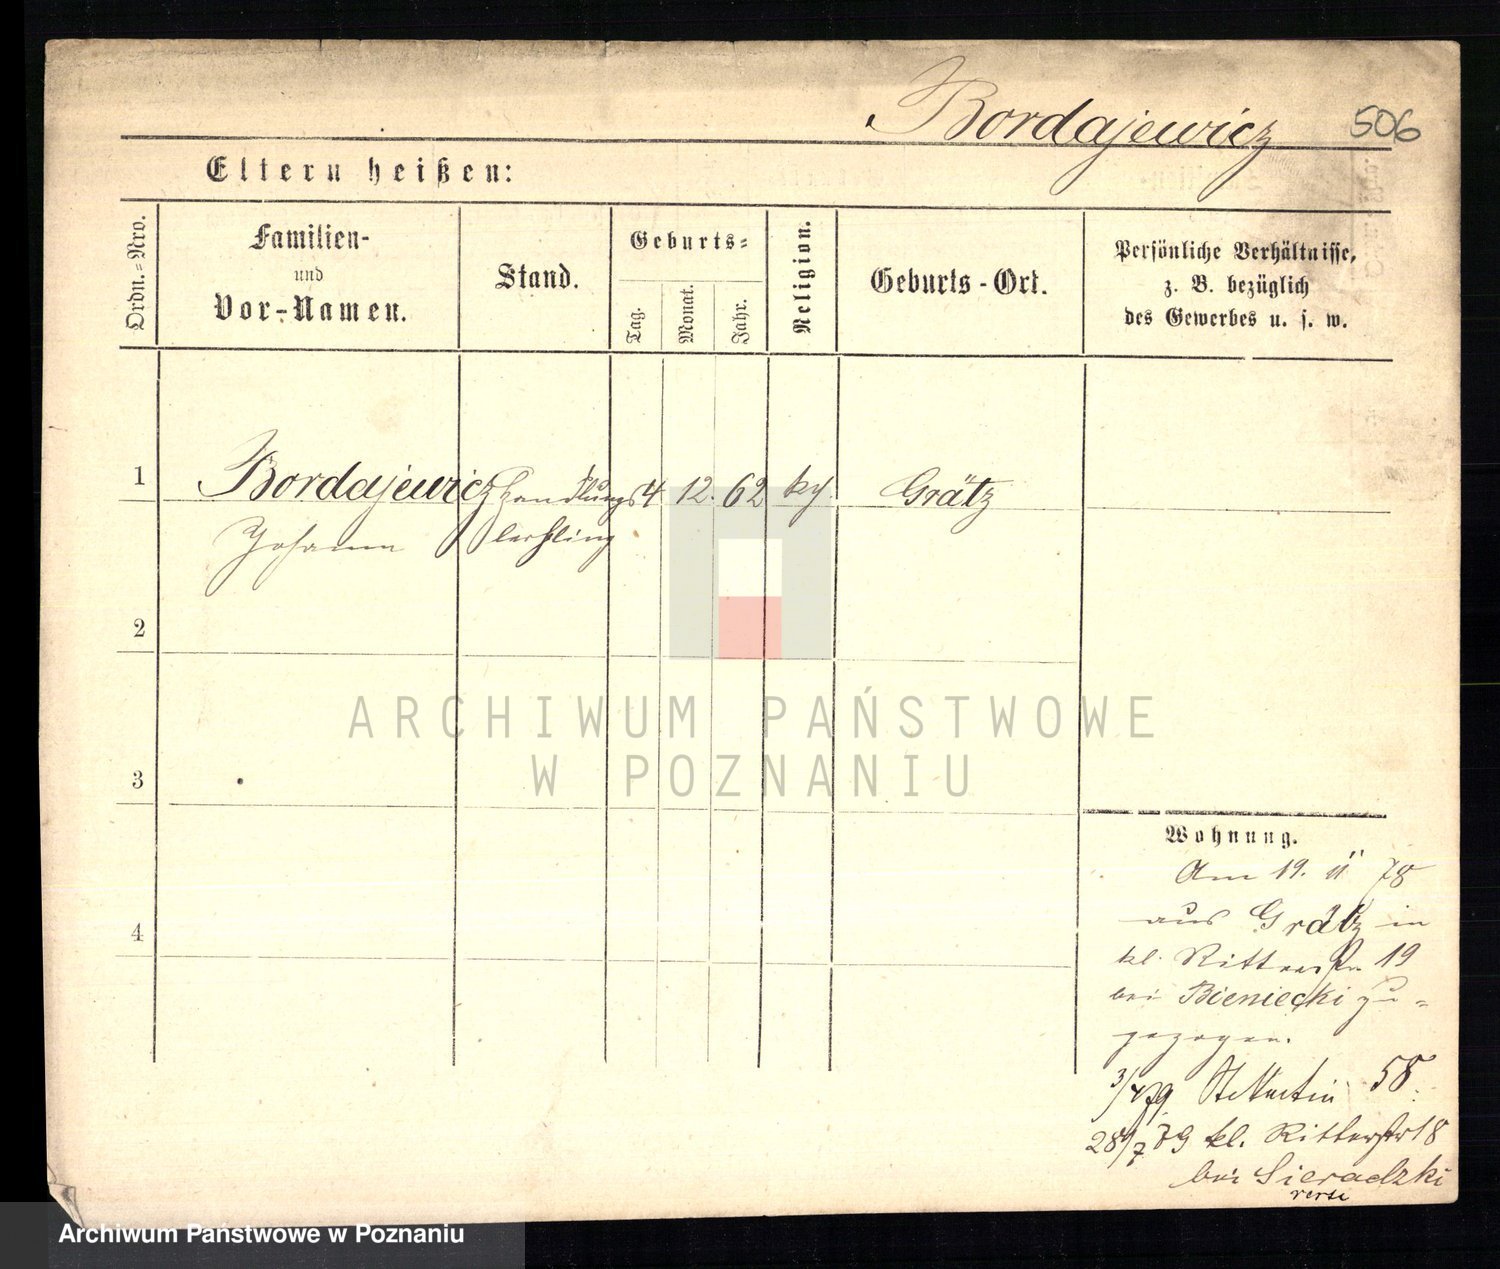 Bordajewicz 506
Eltern heißen:
Ordn.=Nro.
Familien-
und
Vor-Namen.
Stand.
Geburts=
Tag.
Monat.
Jahr.
Religion.
Geburts-Ort.
Persönliche Verhältnisse,
z. B. bezüglich
des Gewerbes u. s. w.
1 Bordajewicz Handlungs 4 12. 62 Grätz
Johann lerhling
2
3
4
ARCHIWUM PAŃSTWOWE
W POZNANIU
Wohnung.
Am 19. 11 78
aus Grätz in
kl. Ritterstr 19
bei Bieniecki zu=
gezogen.
3/4 79. St Martin 58.
28/7 79 kl. Ritterstr 18
bei Sieradzki
verte
Archiwum Państwowe w Poznaniu